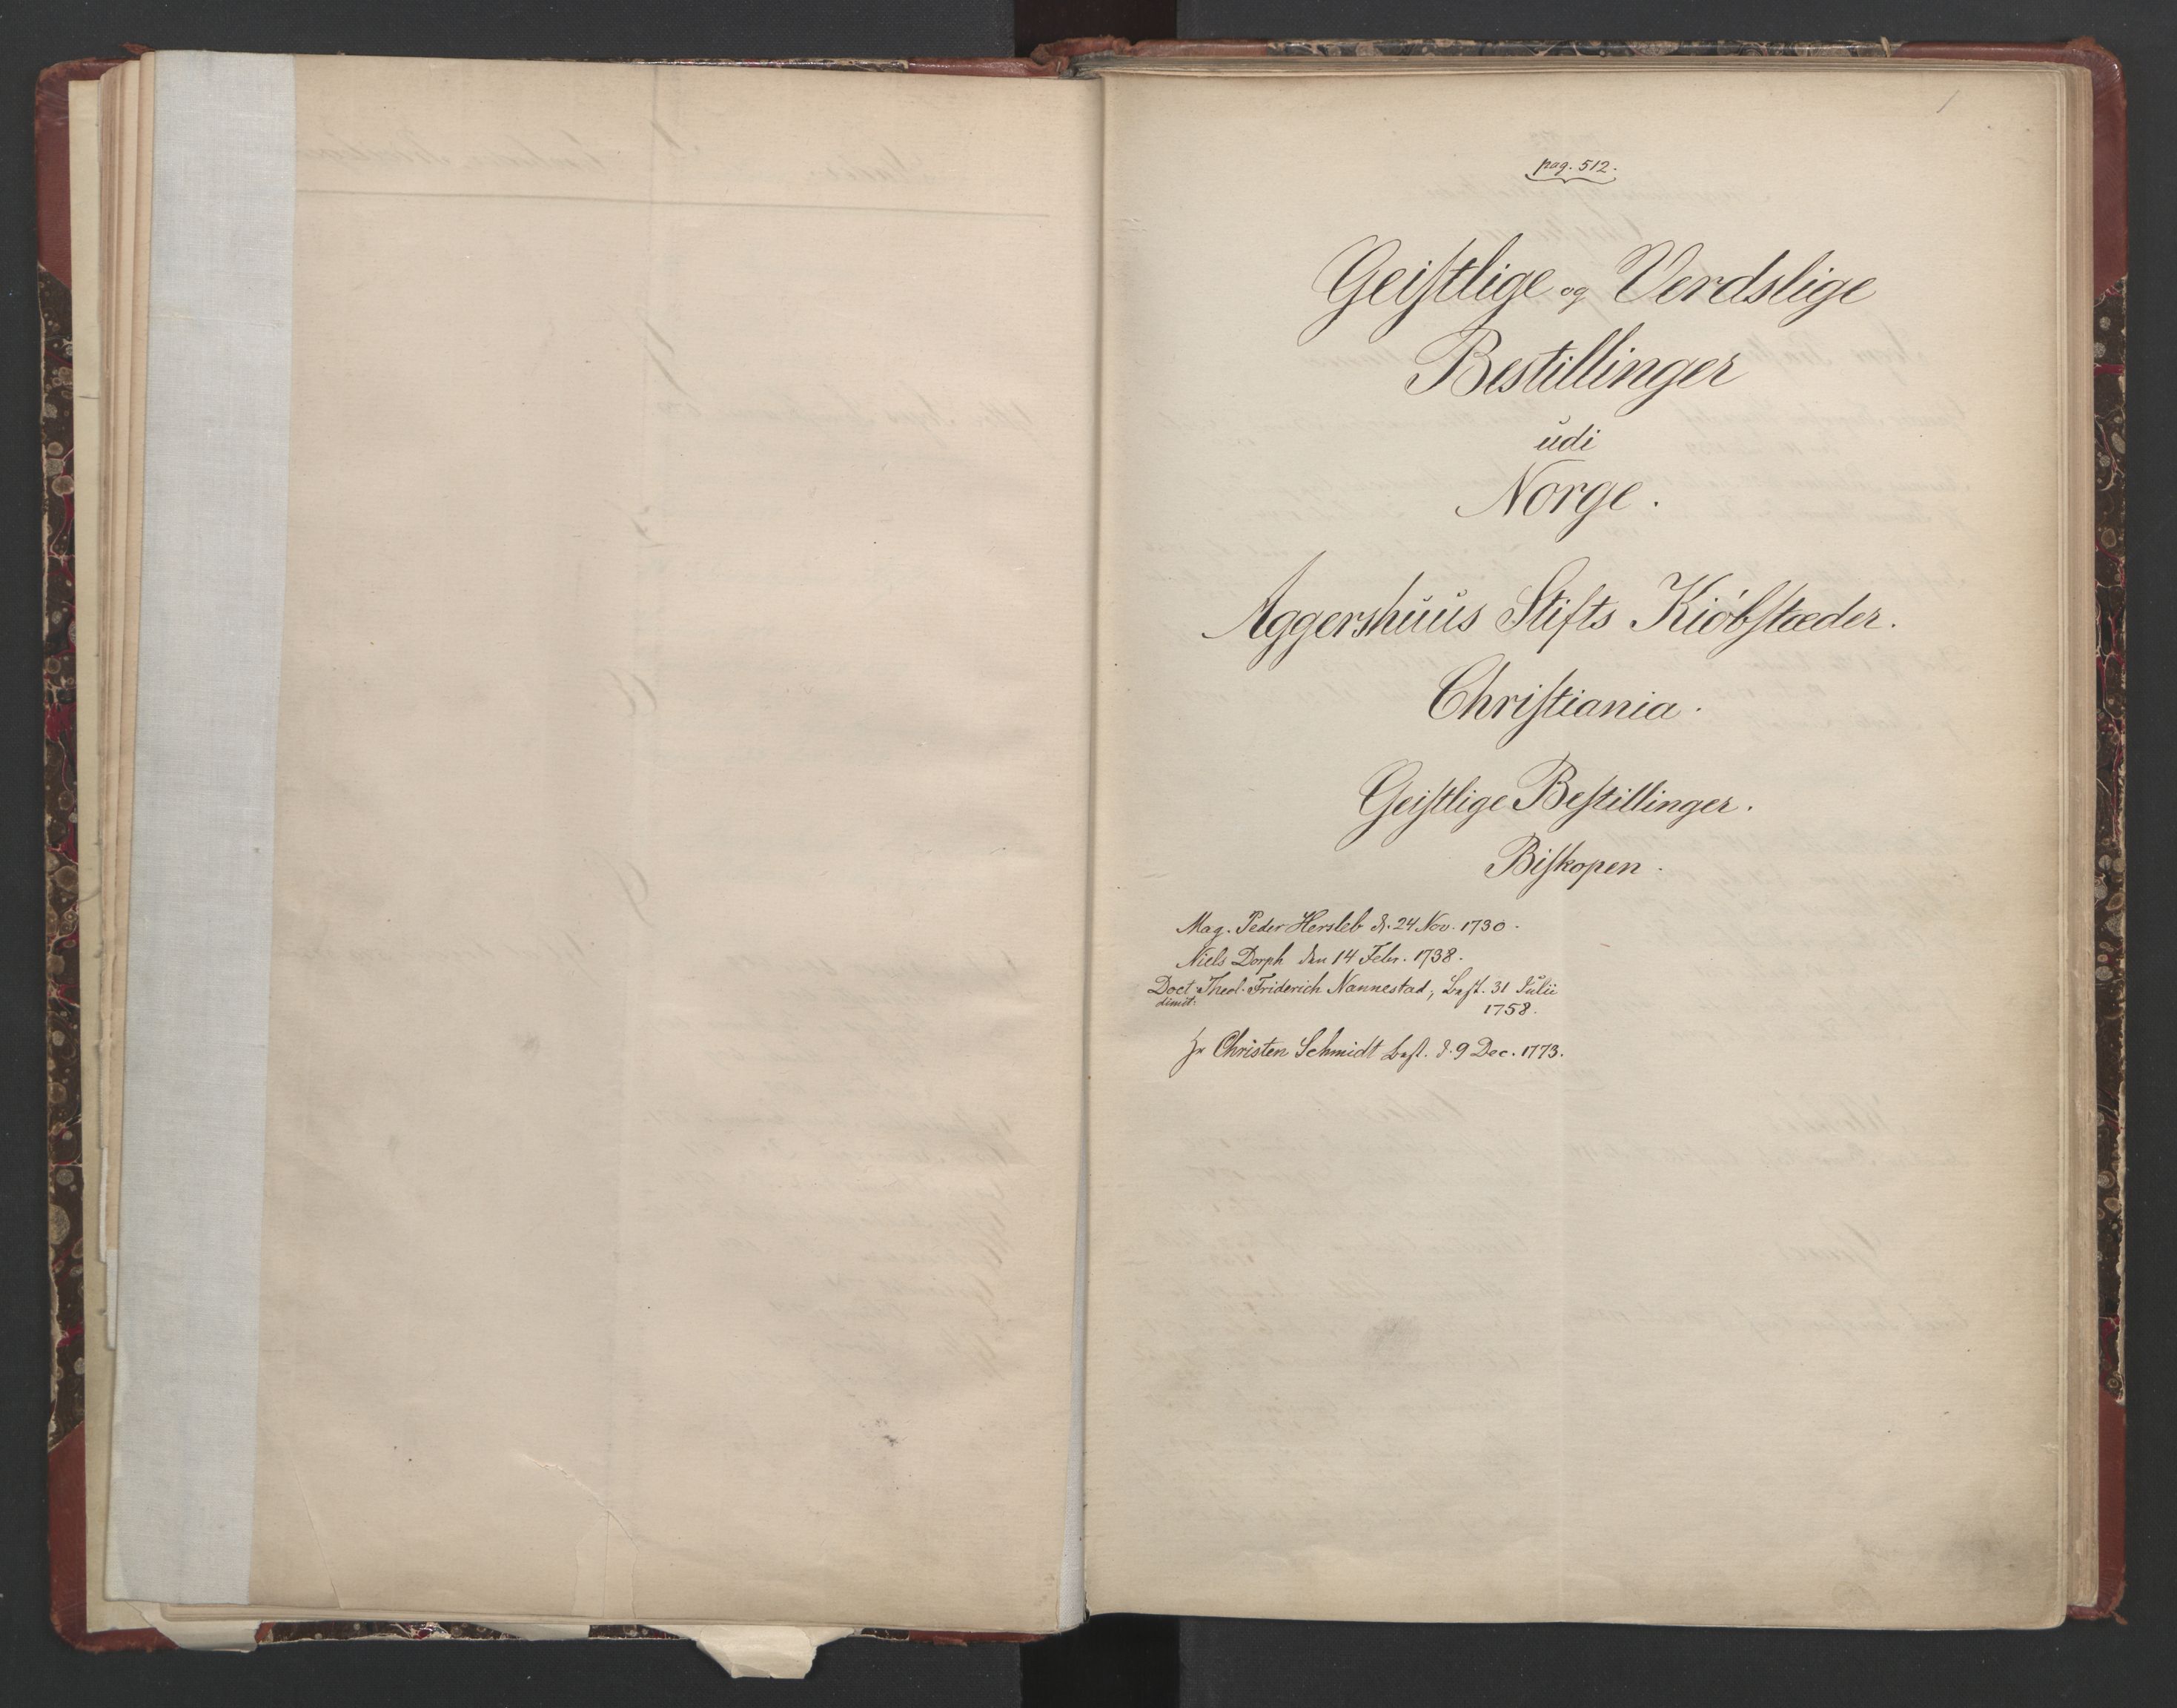 1
pag. 512.
Geistlige og Verdslige
Bestillinger
udi
Norge.
Aggershuus Stifts Kiöbstæder.
Christiania.
Geistlige Bestillinger.
Biskopen.
Mag. Peder Hersleb d. 24 Nov. 1730.
Niels Dorph den 14 Febr. 1738.
Doct. Theol. Friderich Nannestad, best. 31 Julii
dimit:
1758.
Hr Christen Schmidt best. d. 9 Dec. 1773.